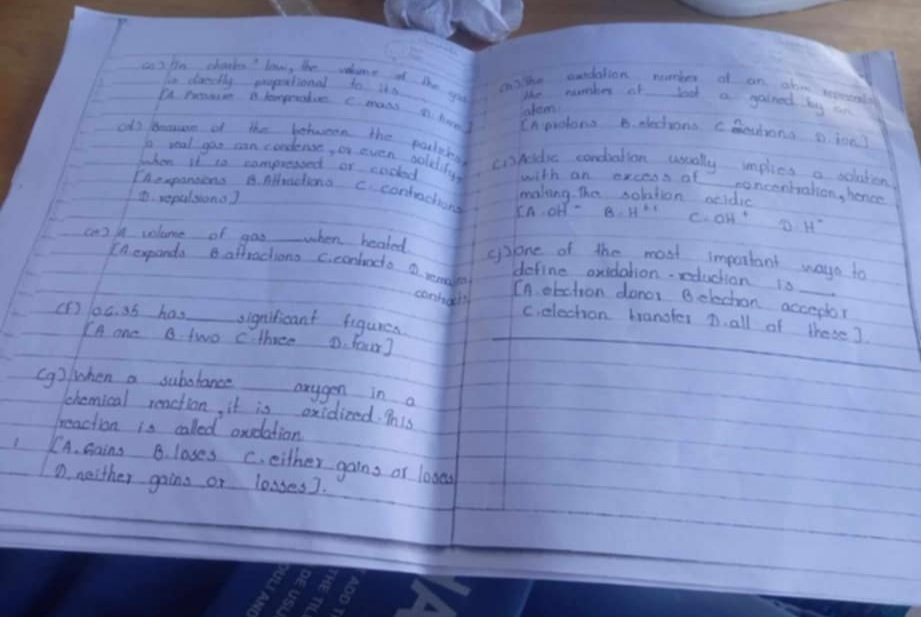 (c) In charles' law, the volume of the gas
is directly proportional to its
[A. Pressure B. temprature C. mass D.
(d) Because of the between the particles
a real gas can condense, or even solidify
when it is compressed or cooled
[A. expansions B. Attractions C. contractions
D. repulsions]
(e) A volume of gas ___ when heated.
[A. expands B. attractions C. contracts D. remains
contracts
(f) 06.35 has ___ significant figures.
[A one B. two C. three D. four]
(g) When a substance ___ oxygen in a
chemical reaction, it is oxidized. This
reaction is called oxidation
[A. Gains B. loses C. either gains or loses
D. neither gains or losses].
The oxidation number of an atom represents
the number of ___ lost a gained by an
atom.
[A. protons B. electrons C neutrons D. ion]
(i) Acidic condiation usually implies a solution
with an excess of ___ concentration, hence
making the solution acidic
[A. OH⁻ B. H⁺⁺ C. OH⁺ D. H⁻
(j) One of the most important ways to
define oxidation-reduction is ___
[A. electron donor B electron acceptor
C. electron transfer D. all of these].
THE
DE USU